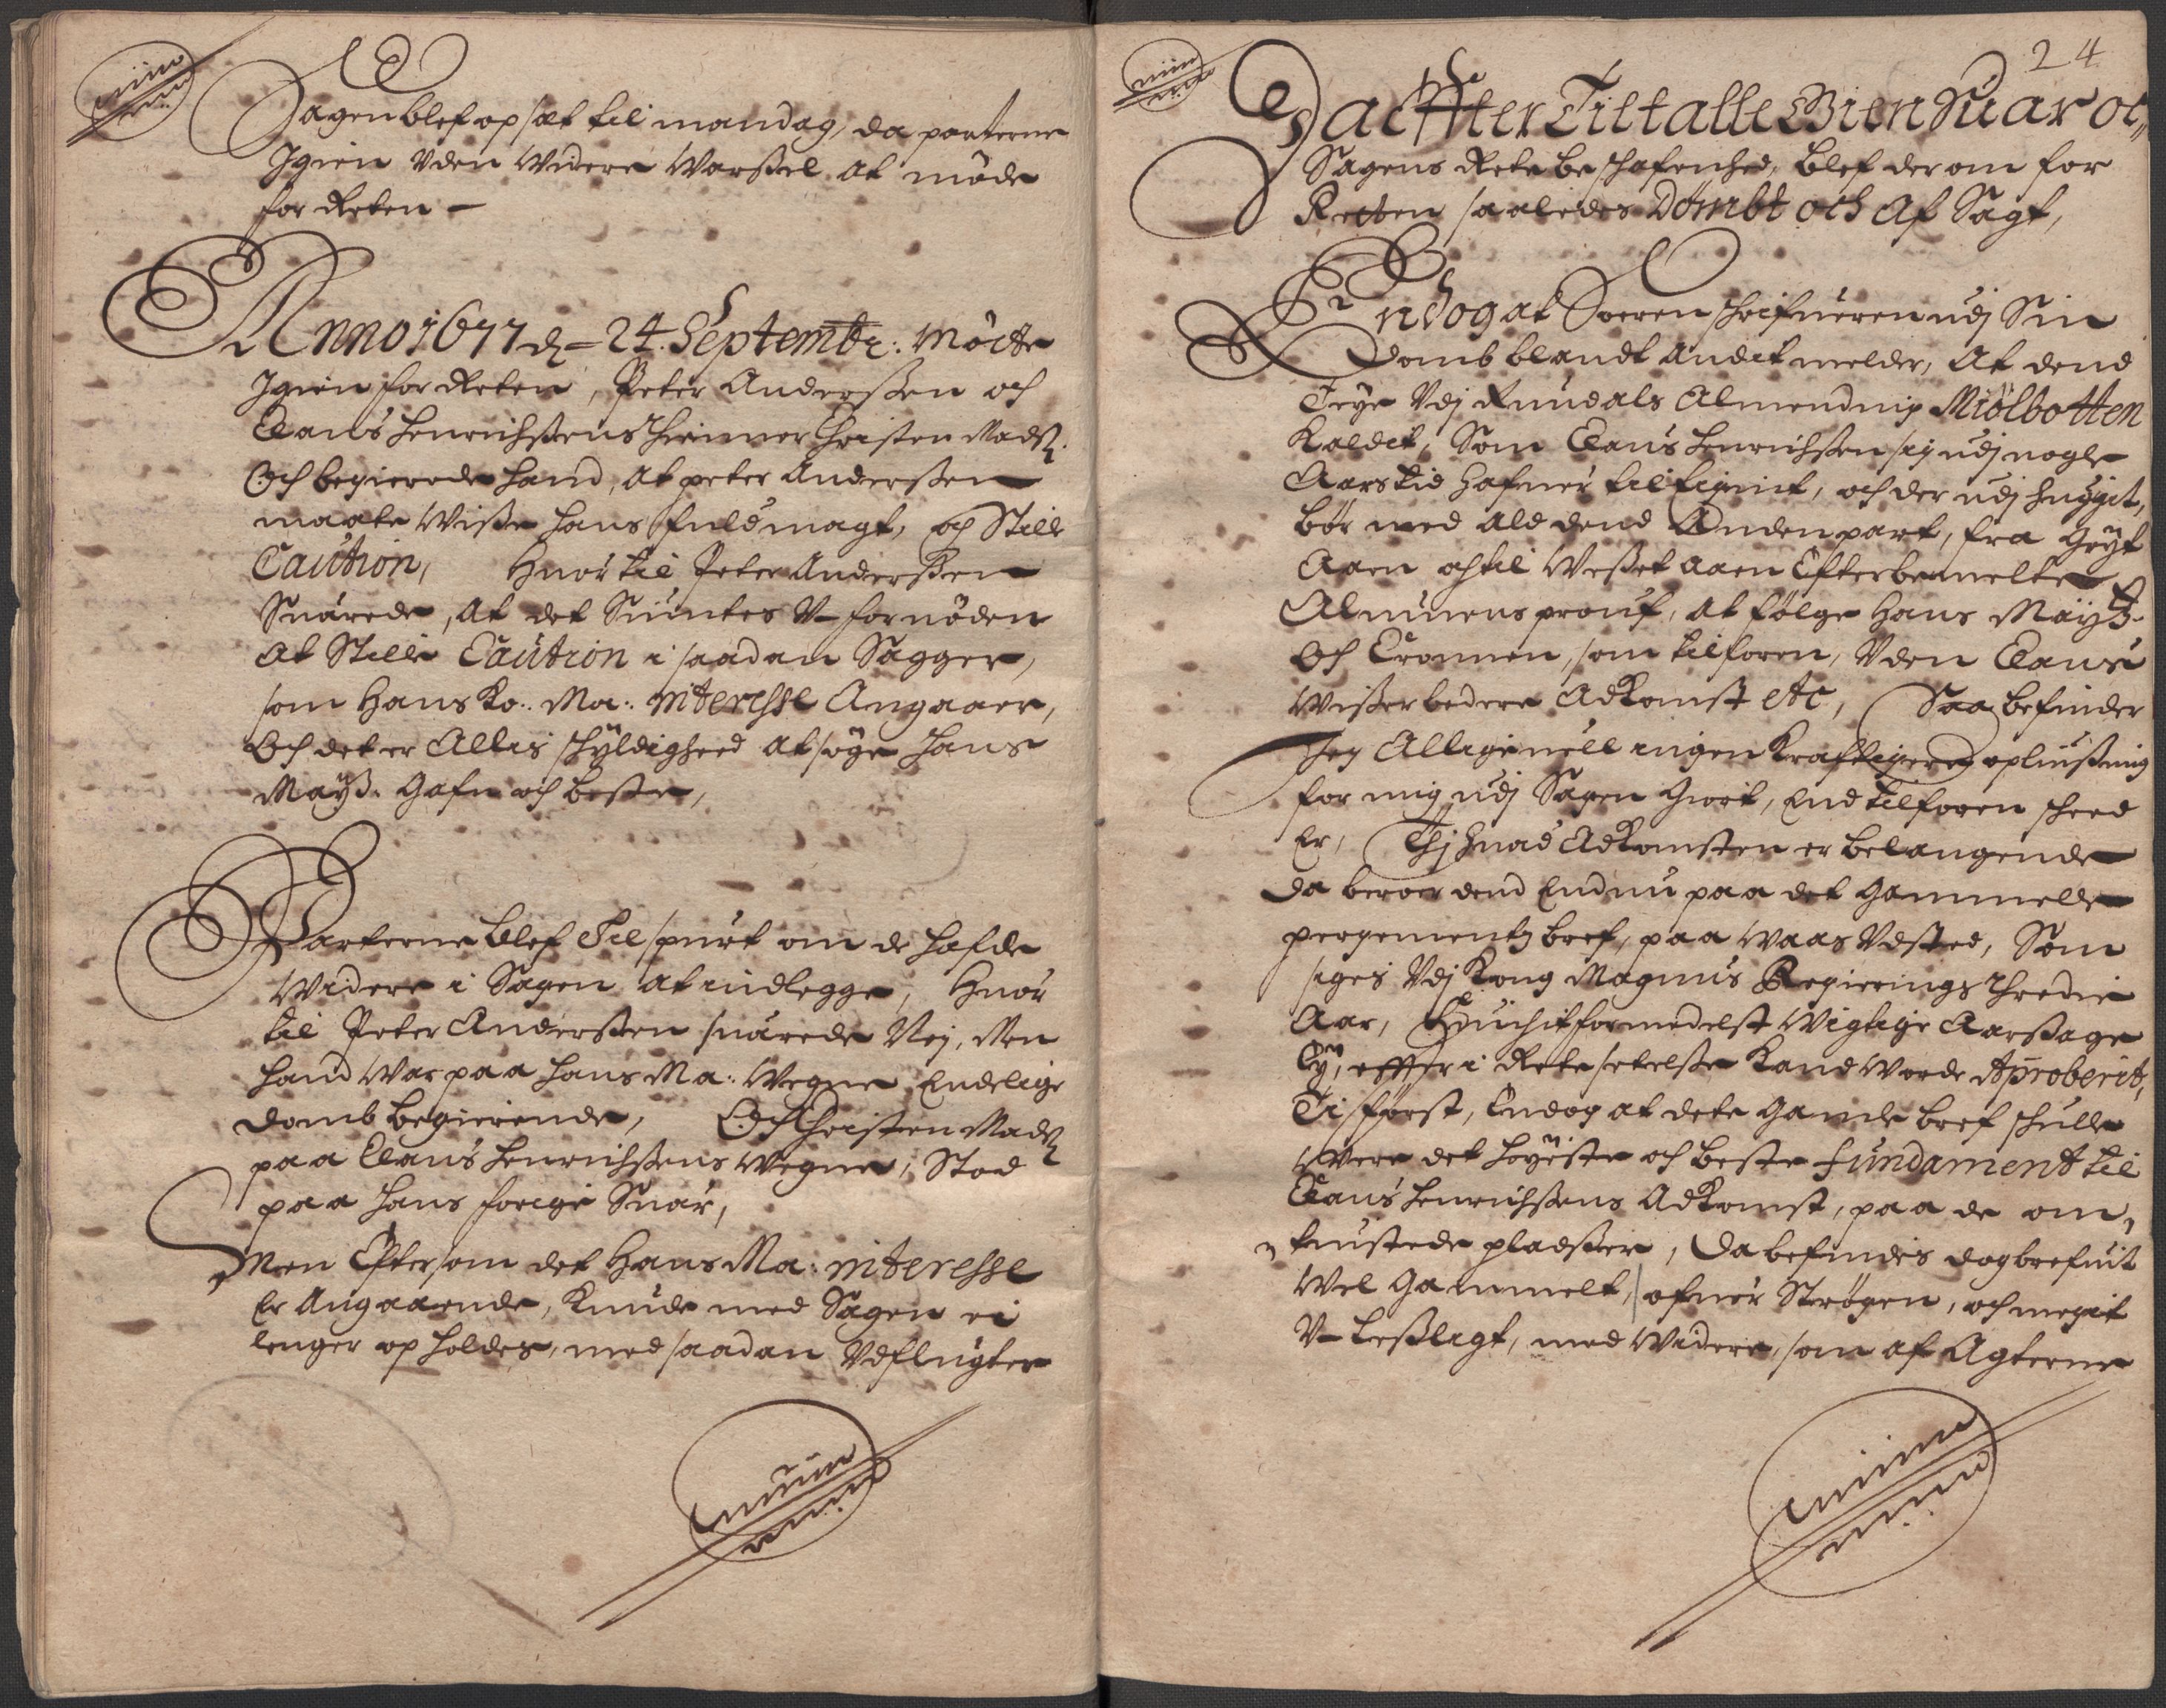 Sagen blef opsat til mandag, da parterne
Igien Vden Widere Warssel at møde
for Retten –
Anno 1677 d. 24. Septembr: Mødte
Igien for Retten, Peter Anderssen och
Claus Henrichssens Christen Madz.
Och begierede hand, at peter Anderssen
maatte Wisse hans fuldmagt, og Stille
Caution, Huor til Peter Anderssen
Suarede, at det Siuntes V-fornøden
At Stille Caution i saadan Sagger,
som Hans Ko: Ma: interesse Angaaer,
Och det er Allis schyldighed at søge Hans
Mayß. Gafn och beste,
Parterne blef Tilspurt om de hafde
Widere i Sagen at indlegge, Huor
til Peter Anderssen suarede Nej, Men
hand War paa Hans Ma: Wegne Endelige
domb begierende, Och Christen Madz
paa Claus Henrichssens Wegne, Stod
paa hans forrige Suar,
Men Eftersom det Hans Ma: interesse
Er Angaaende, Kunde med Sagen ei
lenger opholdes, med saadan Vdflugter
24
Da Effter Tiltalle Gien Suar oc
Sagens Rette beschafenhed, blef der om for
Retten saaledes Dømbt och Af Sagt,
Endog at Soeren schrifueren udj Sin
Domb blandt Andet melder, At dend
Teye Vdj Rundals Almending Miølbotten
Kaldet, Som Claus Henrichssen sig udj nogle
Aars tid hafuer tilEignit, och der udj huggit,
bør med ald dend Anden part, fra Gryt
Aaen och til Wesset Aaen Efter bemelte
Almuens prouf, at følge Hans Mayß.
Och Cronnen, som tilforen, Vden Claus
Wisser bedere Adkomst etc, Saa befinder
Jeg Alligeuell ingen Krafftigere opliussning
for mig udj Sagen Giort, End tilforen scheed
Er, Thj huad Adkomsten er belangende
da beroer dend Endnu paa det Gammelle
pergementz bref, paa Waas Vdsted, Som
siges Vdj Kong Magnus Regierings Thredie
Aar, Huilchit formedelst Wigtige Aarssage
Ey, effter i Rette settelsse Kand Worde Aproberit,
Ti først, Endog at dette Gamle bref schulle
Were det høyeste och beste fundament til
Claus Henrichssens Adkomst, paa de om,
tuistede pladsser, Da befindis dog brefuit
Wel Gammelt, ofuer Strøgen, och megit
V-lesseligt, med Widere, som af Agterne